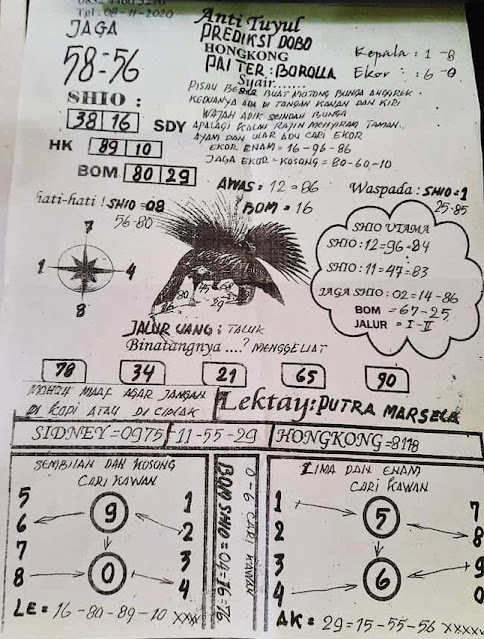 Tgl : 08-11-2020
JAGA
58-56
Anti Tuyul
PREDIKSI DOBO
HONGKONG
PAITER : BOROLLA
Syair.......
Kepala : 1-8
Ekor : 6-0
PISAU BESAR BUAT MOTONG BUNGA ANGGREK
KEDUANYA ADA DI TANGAN KANAN DAN KIRI
WAJAH ADIK SEINDAH BUNGA
APALAGI KALAU RAJIN MENYIRAM TAMAN..
AYAM DAN ULAR ADU CARI EKOR
EKOR ENAM = 16-96-86
JAGA EKOR-KOSONG = 80-60-10
SHIO :
38 16 SDY
HK 89 10
BOM 80 29
AWAS = 12=86
Waspada : SHIO=1
25-85
hati-hati ! SHIO=08
56-80
BOM = 16
7
1 4
8
SHIO UTAMA
SHIO : 12-96=84
SHIO : 11-47=83
JAGA SHIO : 02=14-86
BOM = 67-25
JALUR = I-II
JALUR UANG : TALUK
Binatangnya ....? MENGGELIAT
78 34 21 65 90
MOHON MAAF AGAR JANGAN
DI KOPI ATAU DI CIPLAK
Lektay: PUTRA MARSELA
SIDNEY=0975 11-55-29 HONGKONG=8118
SEMBILAN DAN KOSONG
CARI KAWAN
5 9 1
6 2
7 3
8 0 4
LE = 16-80-89-10 XXX
0-6 CARI KAWAN
BOM SHIO = 04-16-76
LIMA DAN ENAM
CARI KAWAN
1 5 7
2 8
3 9
4 6 0
AK = 29=15-55-56 XXXX